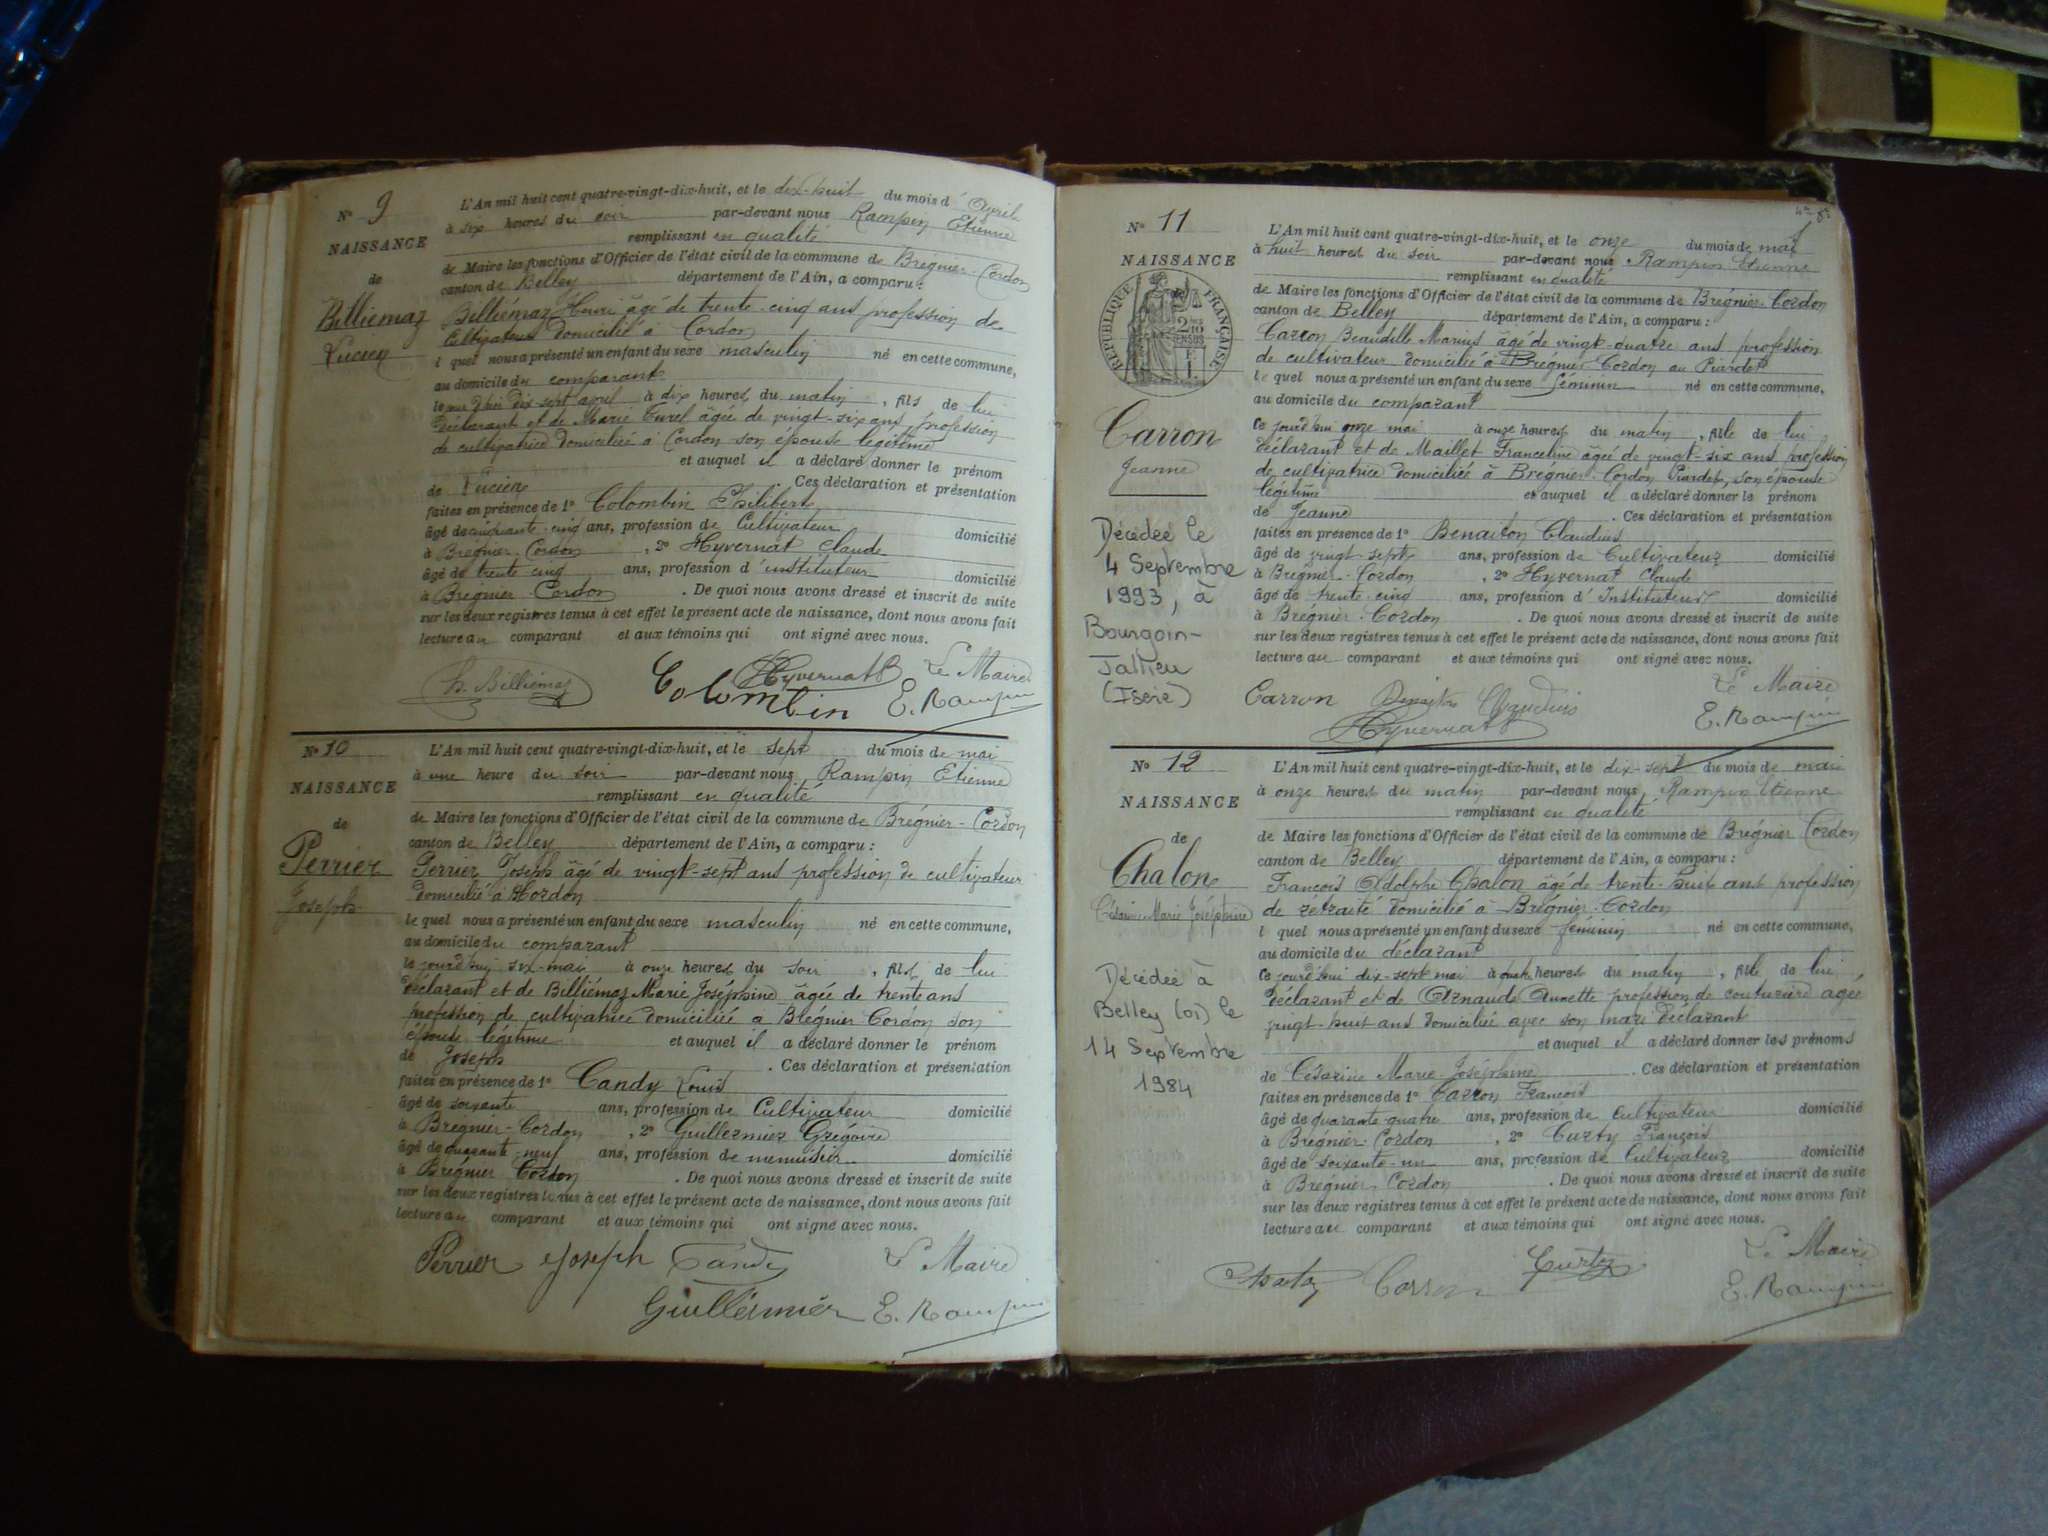 N° 9
NAISSANCE
de
Billiemaz
Lucien
L'An mil huit cent quatre-vingt-dix-huit, et le dix-huit du mois d'Avril
à six heures du soir par-devant nous Rampin Etienne
remplissant en qualité
de Maire les fonctions d'Officier de l'état civil de la commune de Brégnier-Cordon
canton de Belley département de l'Ain, a comparu :
Billiémaz Henri âgé de trente-cinq ans profession de
Cultivateur domicilié à Cordon
l quel nous a présenté un enfant du sexe masculin né en cette commune,
au domicile du comparant
le dix-sept avril à dix heures du matin, fils de lui
Déclarant et de Marie Curel âgée de vingt-six ans profession
de cultivatrice domiciliée à Cordon son épouse légitime
et auquel il a déclaré donner le prénom
de Lucien Ces déclaration et présentation
faites en présence de 1° Colombin Philibert
âgé de cinquante-cinq ans, profession de Cultivateur domicilié
à Brégnier-Cordon, 2° Hyvernat Claude
âgé de trente-cinq ans, profession d'instituteur domicilié
à Brégnier-Cordon. De quoi nous avons dressé et inscrit de suite
sur les deux registres tenus à cet effet le présent acte de naissance, dont nous avons fait
lecture au comparant et aux témoins qui ont signé avec nous.
h. Billiémaz Colombin Hyvernat Le Maire
E. Rampin
N° 10
NAISSANCE
de
Perrier
Joseph
L'An mil huit cent quatre-vingt-dix-huit, et le sept du mois de mai
à une heure du soir par-devant nous Rampin Etienne
remplissant en qualité
de Maire les fonctions d'Officier de l'état civil de la commune de Brégnier-Cordon
canton de Belley département de l'Ain, a comparu :
Perrier Joseph âgé de vingt-sept ans profession de cultivateur
domicilié à Cordon
le quel nous a présenté un enfant du sexe masculin né en cette commune,
au domicile du comparant
le jourd'hui six-mai à onze heures du soir, fils de lui
Déclarant et de Billiémaz Marie Joséphine âgée de trente ans
profession de cultivatrice domiciliée à Brégnier Cordon son
épouse légitime et auquel il a déclaré donner le prénom
de Joseph. Ces déclaration et présentation
faites en présence de 1° Candy Louis
âgé de soixante ans, profession de Cultivateur domicilié
à Brégnier-Cordon, 2° Guillermier Grégoire
âgé de quarante-neuf ans, profession de menuisier domicilié
à Brégnier Cordon. De quoi nous avons dressé et inscrit de suite
sur les deux registres tenus à cet effet le présent acte de naissance, dont nous avons fait
lecture au comparant et aux témoins qui ont signé avec nous.
Perrier Joseph Candy Le Maire
Guillermier E. Rampin
N° 11
NAISSANCE
RÉPUBLIQUE FRANÇAISE
Carron
Jeanne
Décédée le
4 Septembre
1993, à
Bourgoin-
Jallieu
(Isère)
L'An mil huit cent quatre-vingt-dix-huit, et le onze du mois de mai
à huit heures du soir par-devant nous Rampin Etienne
remplissant en qualité
de Maire les fonctions d'Officier de l'état civil de la commune de Brégnier-Cordon
canton de Belley département de l'Ain, a comparu :
Carron Beaudille Marius âgé de vingt-quatre ans profession
de cultivateur domicilié à Brégnier-Cordon au Piardet
le quel nous a présenté un enfant du sexe féminin né en cette commune,
au domicile du comparant
Ce jourd'hui onze mai à onze heures du matin, fille de lui
déclarant et de Maillet Franceline âgée de vingt-six ans profession
de cultivatrice domiciliée à Brégnier-Cordon Piardet, son épouse
légitime et auquel il a déclaré donner le prénom
de Jeanne. Ces déclaration et présentation
faites en présence de 1° Benaiton Claudius
âgé de vingt-sept ans, profession de Cultivateur domicilié
à Brégnier-Cordon, 2° Hyvernat Claude
âgé de trente-cinq ans, profession d'Instituteur domicilié
à Brégnier-Cordon. De quoi nous avons dressé et inscrit de suite
sur les deux registres tenus à cet effet le présent acte de naissance, dont nous avons fait
lecture au comparant et aux témoins qui ont signé avec nous.
Carron Claudius Le Maire
Hyvernat E. Rampin
N° 12
NAISSANCE
de
Chalon
Césarine Marie Joséphine
Décédée à
Belley (01) le
14 Septembre
1984
L'An mil huit cent quatre-vingt-dix-huit, et le dix-sept du mois de mai
à onze heures du matin par-devant nous Rampin Etienne
remplissant en qualité
de Maire les fonctions d'Officier de l'état civil de la commune de Brégnier Cordon
canton de Belley département de l'Ain, a comparu :
François Adolphe Chalon âgé de trente-huit ans profession
de retraité domicilié à Brégnier-Cordon
l quel nous a présenté un enfant du sexe féminin né en cette commune,
au domicile du déclarant
Ce jourd'hui dix-sept mai à heures du matin, fille de lui
Déclarant et de Arnaude Annette profession de couturière agée
vingt-huit ans domiciliée avec son mari déclarant
et auquel il a déclaré donner les prénoms
de Césarine Marie-Joséphine. Ces déclaration et présentation
faites en présence de 1° Carron François
âgé de quarante quatre ans, profession de Cultivateur domicilié
à Brégnier-Cordon, 2° Curty François
âgé de soixante-un ans, profession de Cultivateur domicilié
à Brégnier Cordon. De quoi nous avons dressé et inscrit de suite
sur les deux registres tenus à cet effet le présent acte de naissance, dont nous avons fait
lecture au comparant et aux témoins qui ont signé avec nous.
Carron Curty Le Maire
E. Rampin